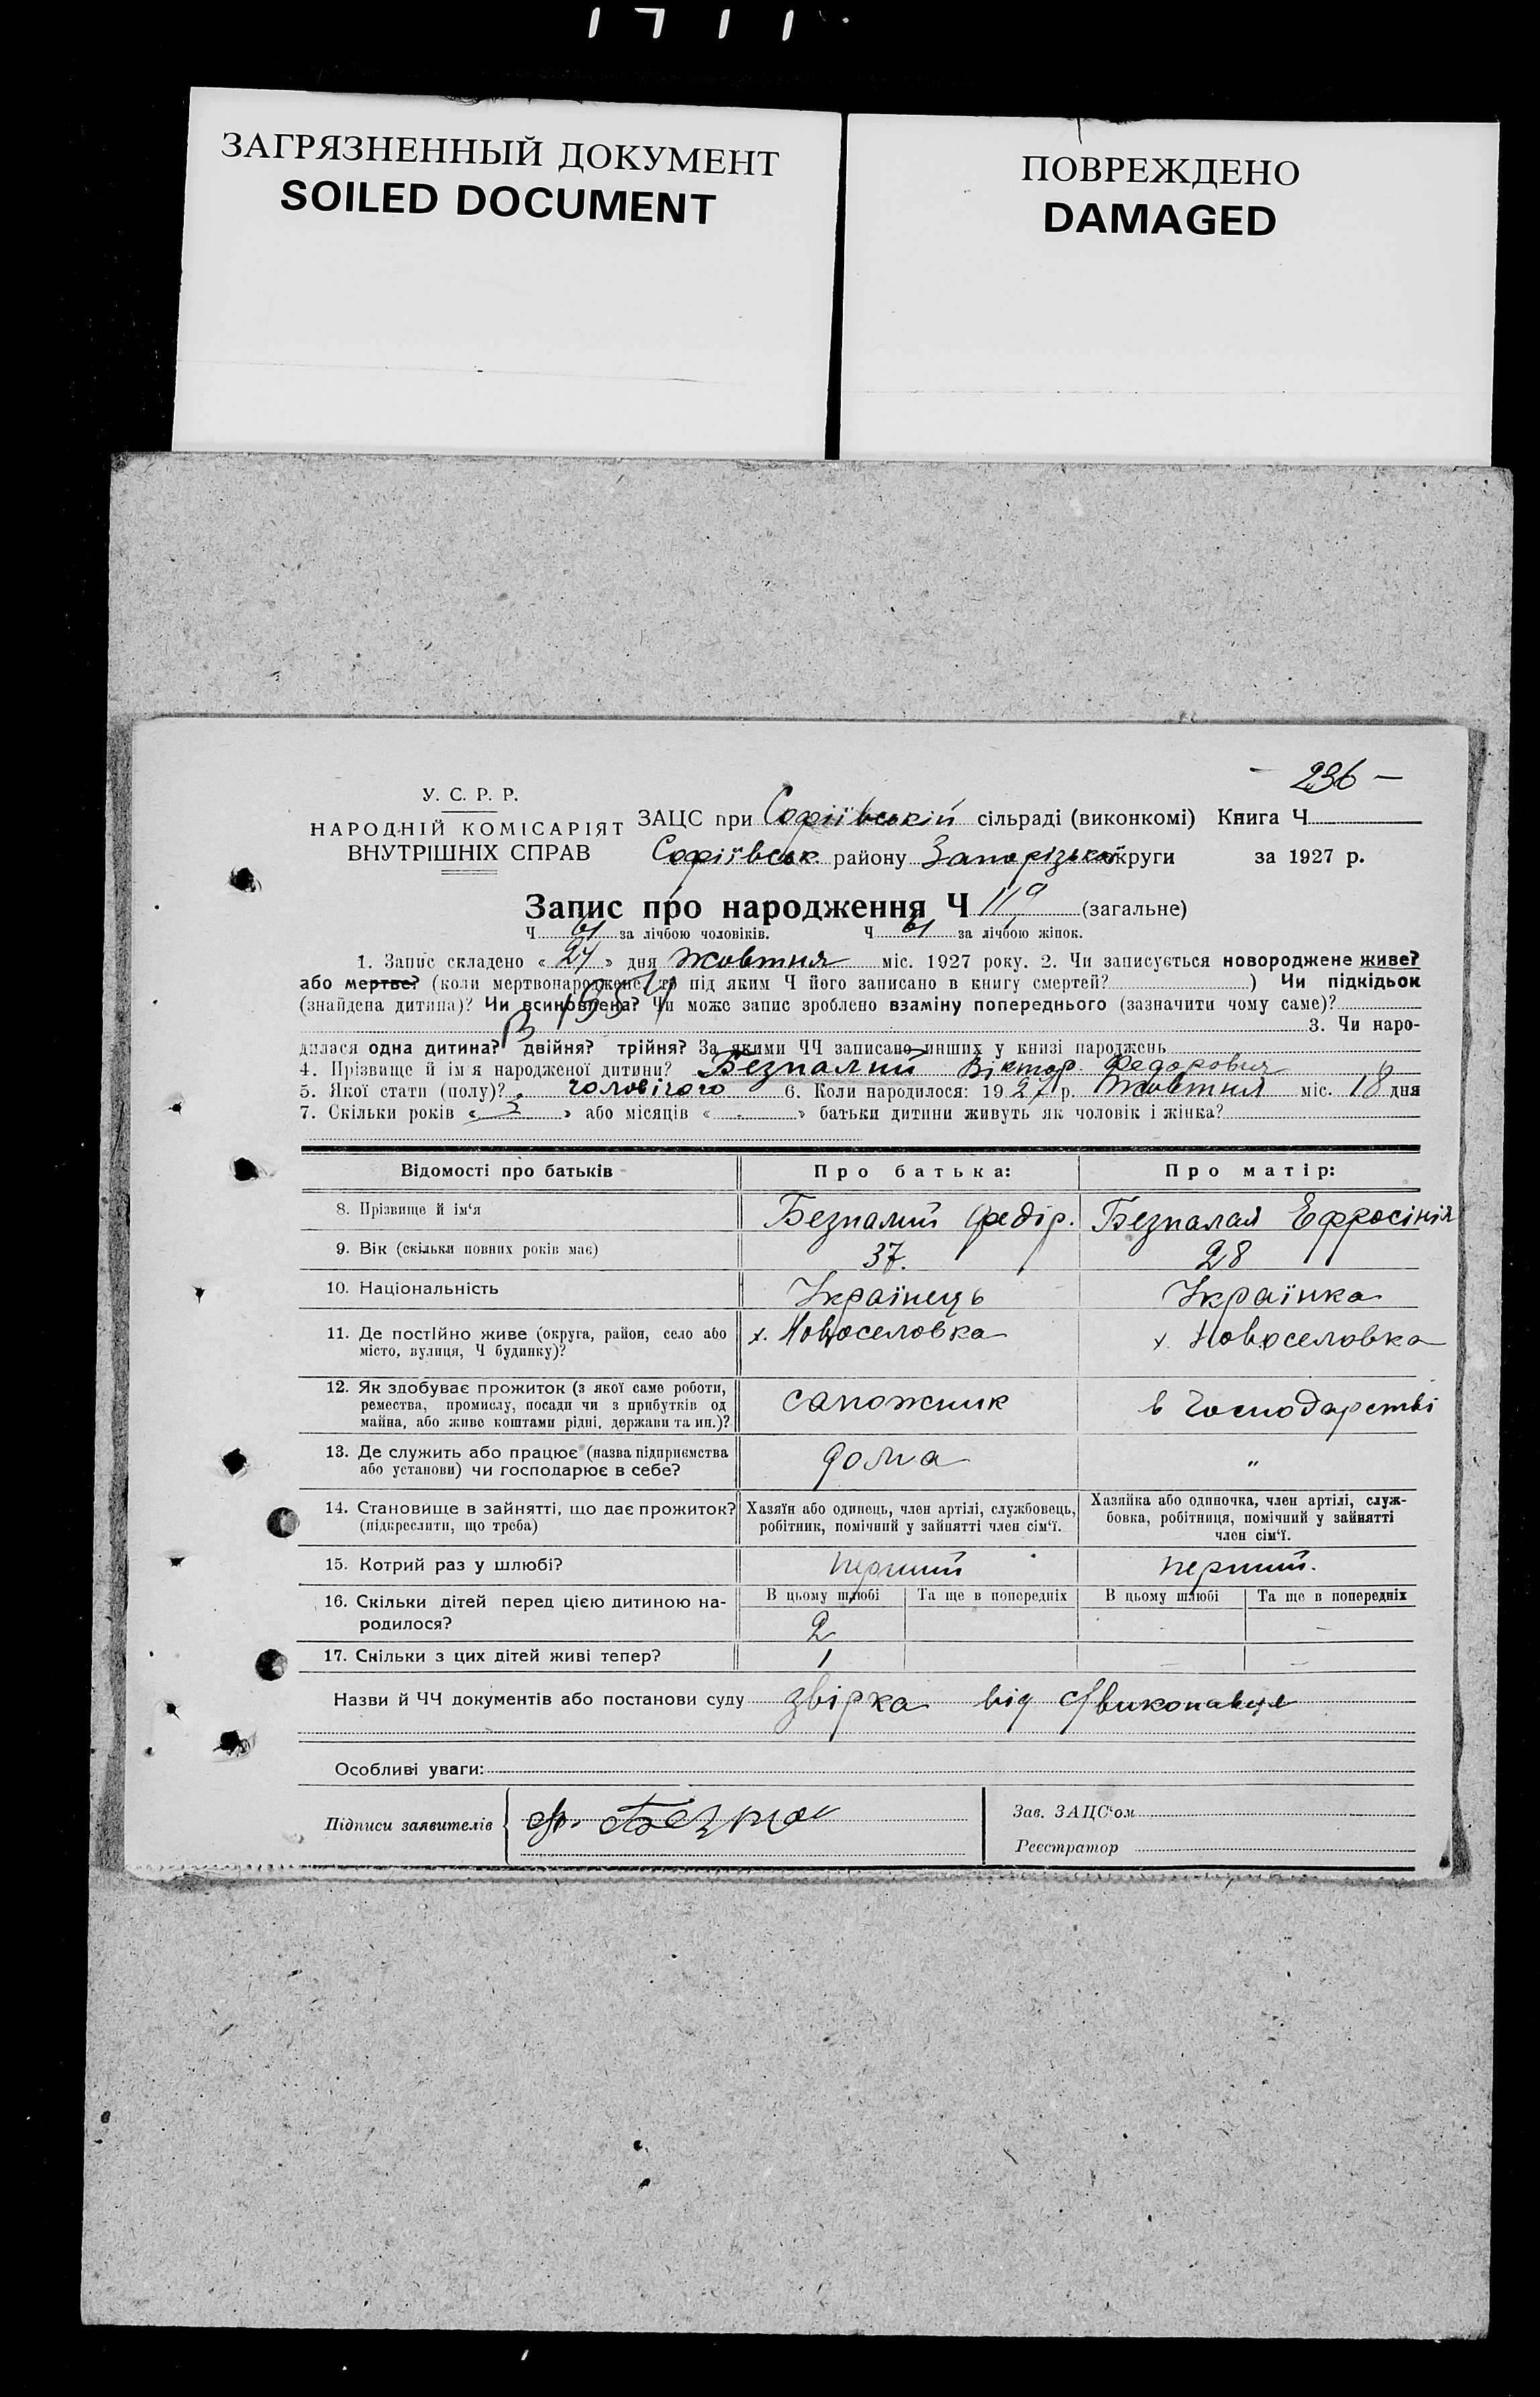 1711
ЗАГРЯЗНЕННЫЙ ДОКУМЕНТ
SOILED DOCUMENT
ПОВРЕЖДЕНО
DAMAGED
- 236 -
У. С. Р. Р.
НАРОДНІЙ КОМІСАРІЯТ
ВНУТРІШНІХ СПРАВ
ЗАЦС при Софіївській сільраді (виконкомі) Книга Ч
Софіївськ району Запорізької округи за 1927 р.
Запис про народження Ч 119 (загальне)
Ч 61 за лічбою чоловіків. Ч 61 за лічбою жінок.
1. Запис складено « 27 » дня жовтня міс. 1927 року. 2. Чи записується новороджене живе?
або мертве? (коли мертвонароджене, то під яким Ч його записано в книгу смертей? ) Чи підкідьок
(знайдена дитина)? Чи всиновлена? Чи може запис зроблено взаміну попереднього (зазначити чому саме)?
3. Чи наро-
дилася одна дитина? двійня? трійня? За якими ЧЧ записано инших у книзі народжень
4. Прізвище й ім'я народженої дитини? Безпалий Віктор Федорович
5. Якої стати (полу)? чоловічого 6. Коли народилося: 1927 р. Жовтня міс. 18 дня
7. Скільки років « 3 » або місяців « - » батьки дитини живуть як чоловік і жінка?
Відомості про батьків Про батька: Про матір:
8. Прізвище й ім'я Безпалий Федір. Безпалая Ефросінія
9. Вік (скільки повних років має) 37. 28
10. Національність Українець Українка
11. Де постійно живе (округа, район, село або
місто, вулиця, Ч будинку)? х. Новоселовка х. Новоселовка
12. Як здобуває прожиток (з якої саме роботи,
ремества, промислу, посади чи з прибутків од
майна, або живе коштами рідні, держави та ин.)? сапожник в господарстві
13. Де служить або працює (назва підприємства
або установи) чи господарює в себе? дома "
14. Становище в зайнятті, що дає прожиток?
(підкреслити, що треба)
Хазяїн або одинець, член артілі, службовець,
робітник, помічний у зайнятті член сім'ї.
Хазяйка або одиночка, член артілі, служ-
бовка, робітниця, помічний у зайнятті
член сім'ї.
15. Котрий раз у шлюбі? перший перший.
16. Скільки дітей перед цією дитиною на-
родилося?
В цьому шлюбі Та ще в попередніх В цьому шлюбі Та ще в попередніх
2 - -
17. Скільки з цих дітей живі тепер? 1 - -
Назви й ЧЧ документів або постанови суду звірка від виконавця
Особливі уваги:
Підписи заявителів Ф. Безпал
Зав. ЗАЦС'ом
Реєстратор